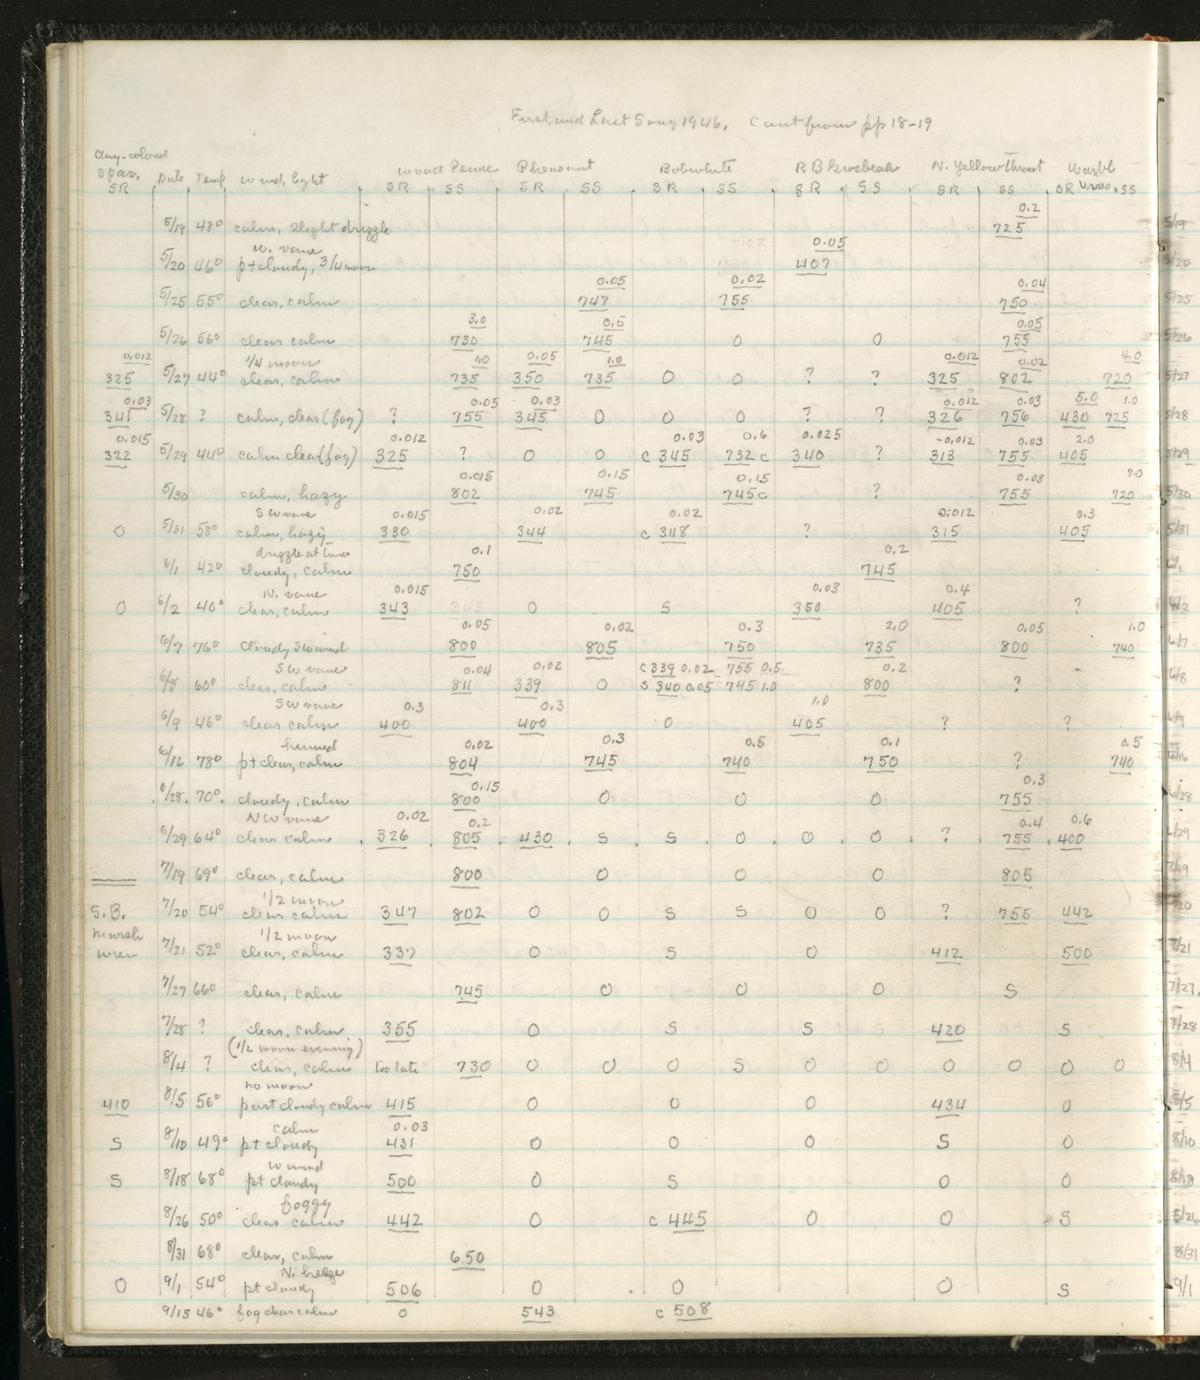 First and Last Song 1946. Cont from pp 18-19
Clay-colored Spar. SR Date Temp Wind, light Wood Pewee SR SS Pheasant SR SS Bobwhite SR SS R B Grosbeak SR SS N. Yellowthroat SR SS Warbl Vireo SR SS
0.2
5/19 48° calm, slight drizzle 725 5/19
W. vane 0.05
5/20 46° pt cloudy, 3/4 moon 407 5/20
0.05 0.02 0.04
5/25 55° clear, calm 747 755 750 5/25
3.0 0.5 0.05
5/26 56° clear calm 730 745 0 0 755 5/26
0.012 1/4 moon 1.0 0.05 1.0 0.012 0.02 4.0
325 5/27 44° clear, calm 735 350 735 0 0 ? ? 325 802 720 5/27
0.03 0.05 0.03 0.012 0.03 5.0 1.0
341 5/28 ? calm, clear (fog) ? 755 345 0 0 0 ? ? 326 756 430 725 5/28
0.015 0.012 0.03 0.6 0.025 -0.012 0.03 2.0
322 5/29 44° calm clear (fog) 325 ? 0 0 c 345 732 c 340 ? 313 755 405 5/29
0.015 0.15 0.15 0.03 7.0
5/30 calm, hazy 802 745 745c ? 755 720 5/30
SW vane 0.015 0.02 0.02 0.012 0.3
0 5/31 58° calm, hazy 330 344 c 348 ? 315 405 5/31
drizzle at times 0.1 0.2
6/1 42° cloudy, calm 750 745 6/1
N. vane 0.015 0.03 0.4
0 6/2 40° clear, calm 343 0 S 350 405 ? 6/2
0.05 0.02 0.3 2.0 0.05 1.0
6/7 76° cloudy SW wind 800 805 750 735 800 740 6/7
SW vane 0.04 0.02 c 339 0.02 755 0.5 0.2
6/8 60° clear, calm 811 339 0 S 340 0.05 745 1.0 800 ? 6/8
SW vane 0.3 0.3 1.0
6/9 46° clear calm 400 400 0 405 ? ? 6/9
humid 0.02 0.3 0.5 0.1 0.5
6/16 78° pt clear, calm 804 745 740 750 ? 740 6/16
0.15 0.3
6/28 70° cloudy, calm 800 0 0 0 755 6/28
NW vane 0.02 0.2 0.4 0.6
6/29 64° clear calm 326 805 430 S S 0 0 0 ? 755 400 6/29
7/19 69° clear, calm 800 0 0 0 805 7/19
1/2 moon
S.B. 7/20 54° clear calm 347 802 0 0 S S 0 0 ? 755 442 7/20
Marsh 1/2 moon
wren 7/21 52° clear, calm 337 0 S 0 412 500 7/21
7/27 66° clear, calm 745 0 0 0 S 7/27
7/28 ? clear, calm 355 0 S S 420 S 7/28
(1/2 moon evening)
8/4 ? clear, calm too late 730 0 0 0 S 0 0 0 0 0 0 8/4
no moon
410 8/5 56° part cloudy calm 415 0 0 0 434 0 8/5
calm 0.03
S 8/10 49° pt cloudy 431 0 0 0 S 0 8/10
W wind
S 8/18 68° pt cloudy 500 0 S 0 0 8/18
foggy
8/26 50° clear calm 442 0 c 445 0 0 S 8/26
8/31 68° clear, calm 650 8/31
N. breeze
0 9/1 54° pt cloudy 506 0 0 0 S 9/1
9/15 46° fog clear calm 0 543 c 508